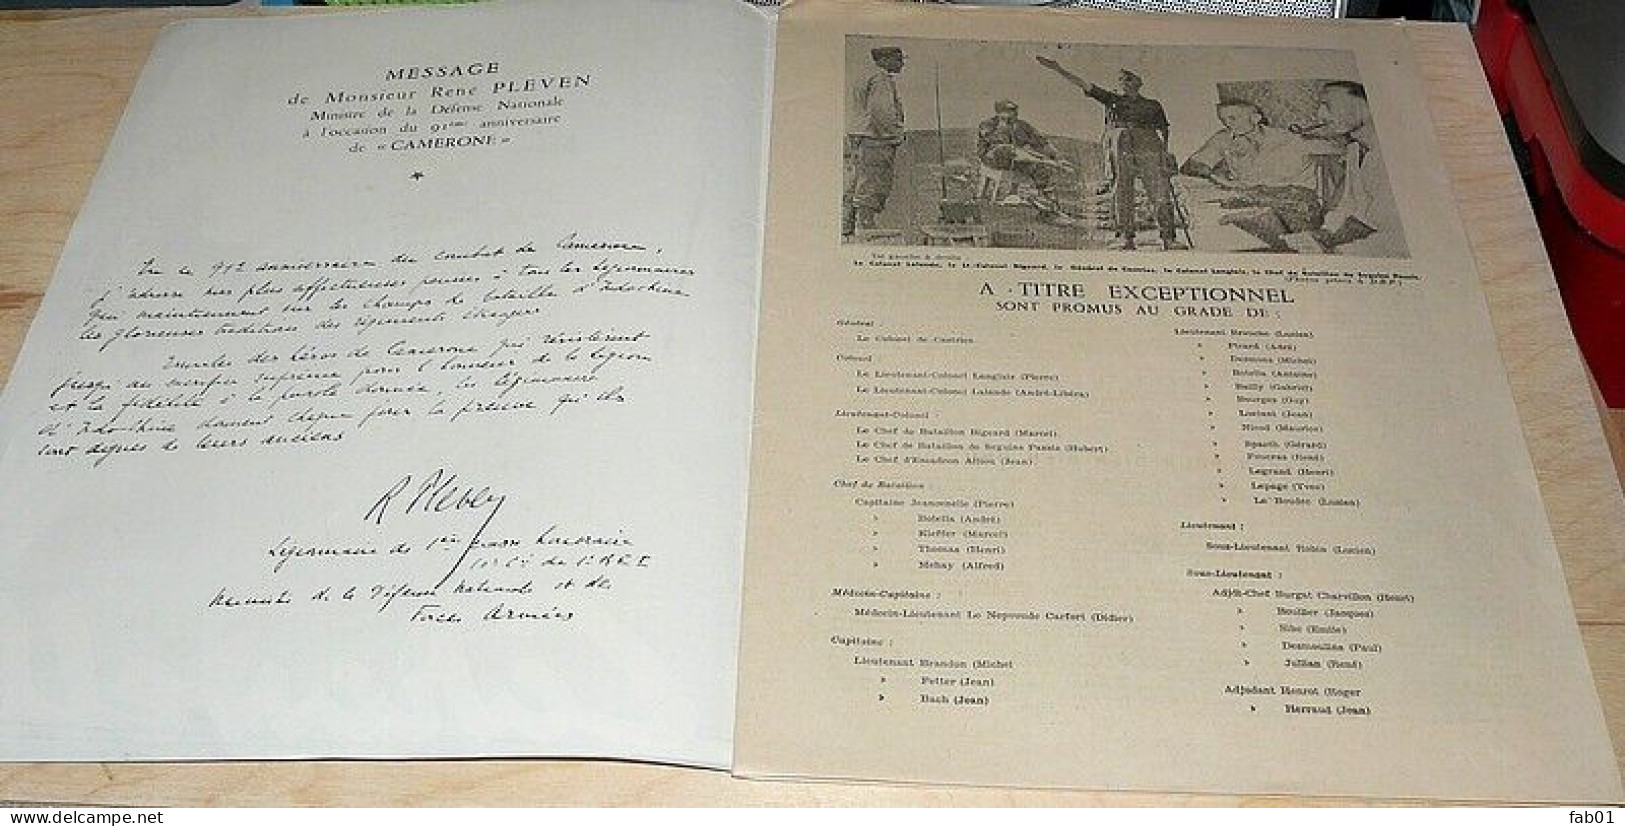 MESSAGE
de Monsieur René PLEVEN
Ministre de la Défense Nationale
à l'occasion du 91ème anniversaire
de « CAMERONE »
En ce 91e anniversaire du combat de Camerone,
j'adresse mes plus affectueuses pensées à tous les Légionnaires
qui maintiennent sur les champs de bataille d'Indochine
les glorieuses traditions des régiments étrangers
Emules des héros de Camerone qui résistèrent
jusqu'au sacrifice suprême pour l'honneur de la Légion
et la fidélité à la parole donnée, les légionnaires
d'Indochine donnent chaque jour la preuve qu'ils
sont dignes de leurs anciens
R Pleven
Légionnaire de 1ère classe honoraire
de l'R.E.I
Ministre de la Défense Nationale et des
Forces Armées
De gauche à droite
Le Colonel Lalande, le Lt-Colonel Bigeard, le Général de Castries, le Colonel Langlais, le Chef de Bataillon de Seguins Pazzis.
A TITRE EXCEPTIONNEL
SONT PROMUS AU GRADE DE :
Général
Le Colonel de Castries
Colonel
Le Lieutenant-Colonel Langlais (Pierre)
Le Lieutenant-Colonel Lalande (André-Libéra)
Lieutenant-Colonel :
Le Chef de Bataillon Bigeard (Marcel)
Le Chef de Bataillon de Seguins Pazzis (Hubert)
Le Chef d'Escadron Alliou (Jean)
Chef de Bataillon :
Capitaine Jeanconelle (Pierre)
» Botella (André)
» Kieffer (Marcel)
» Thomas (Henri)
» Mehay (Alfred)
Médecin-Capitaine :
Médecin-Lieutenant Le Nepvoude Carfort (Didier)
Capitaine :
Lieutenant Brandon (Michel
» Fetter (Jean)
» Bach (Jean)
Lieutenant (Lucien)
» Picard
» Desmons (Michel)
» Botella (Antoine)
» Bailly (Gabriel)
» Bourges (Guy)
» Luciani (Jean)
» Nicod (Maurice)
» Spaeth (Gérard)
» Foucras (René)
» Legrand (Henri)
» Lepage (Yves)
» Le Boudec (Lucien)
Lieutenant :
Sous-Lieutenant Robin (Lucien)
Sous-Lieutenant :
Adjdt-Chef Burgat Charvillon (Henri)
» Boullier (Jacques)
» Sibe (Emile)
» Desmoulins (Paul)
» Jullian (René)
Adjudant Henrot (Roger
» Herraud (Jean)
fab01